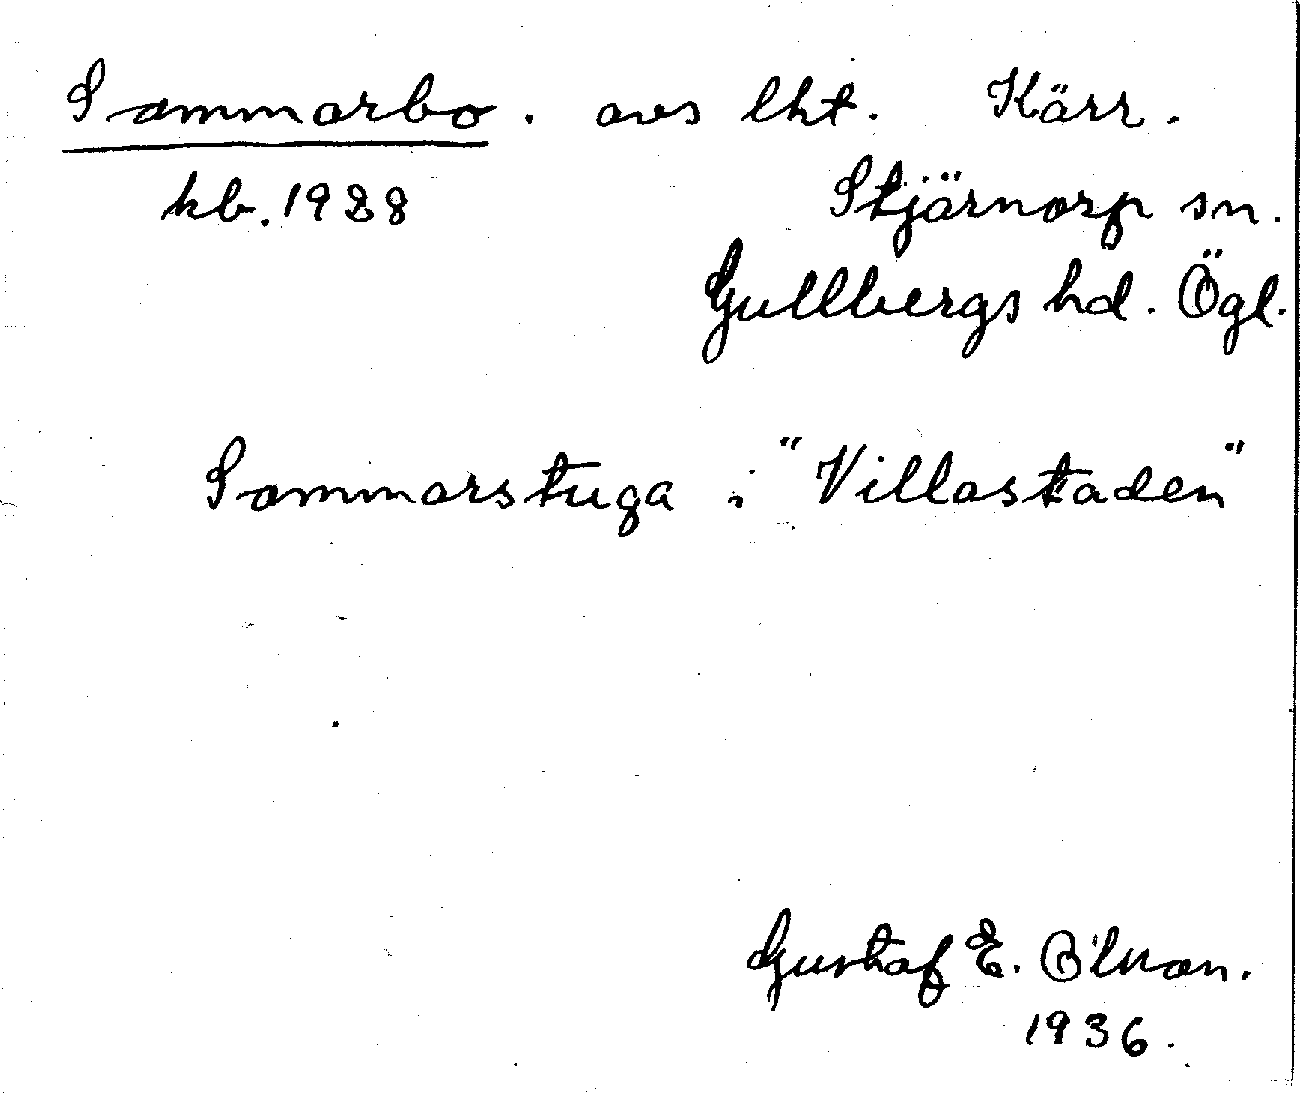 Sammarbo. avs lht. Kärr.
kb. 1928 Stjärnorp sn.
Gullbergs hd. Ögl.
Sommarstuga i "Villastaden"
Gustaf E.
1936.